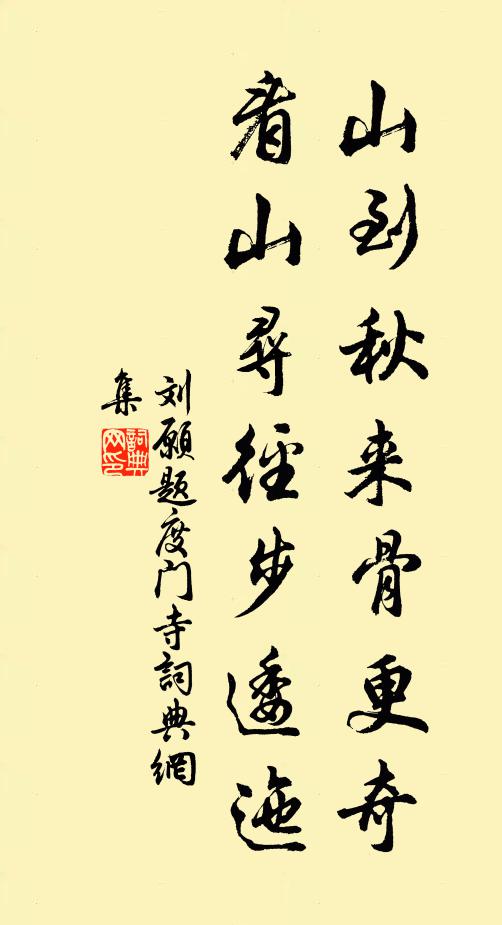 山到秋来骨更奇
看山寻径步逶迤
刘愿题度门寺詞典網
集
詞典网印